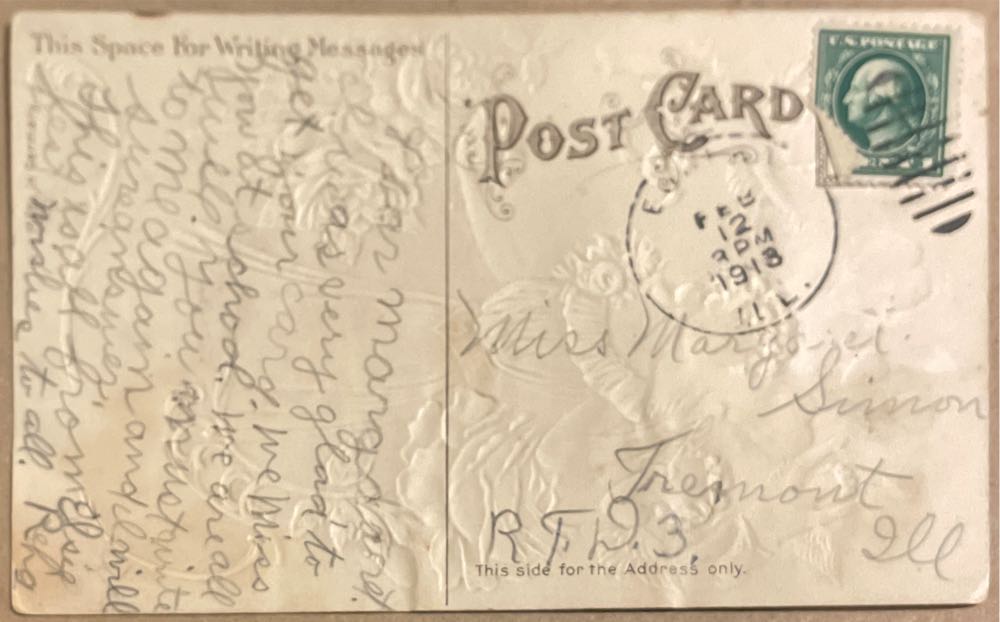 This Space For Writing Messages
POST CARD
U.S. POSTAGE
FEB
12
3 PM
1918
ILL.
Miss Margaret
Simon
Tremont
Ill
R.F.D. 3,
This side for the Address only.
Dear Margaret
I was very glad to
get your card. We Miss
you at school. we are all
well. you must write
to me again and I will
answer
this is all from Elsie